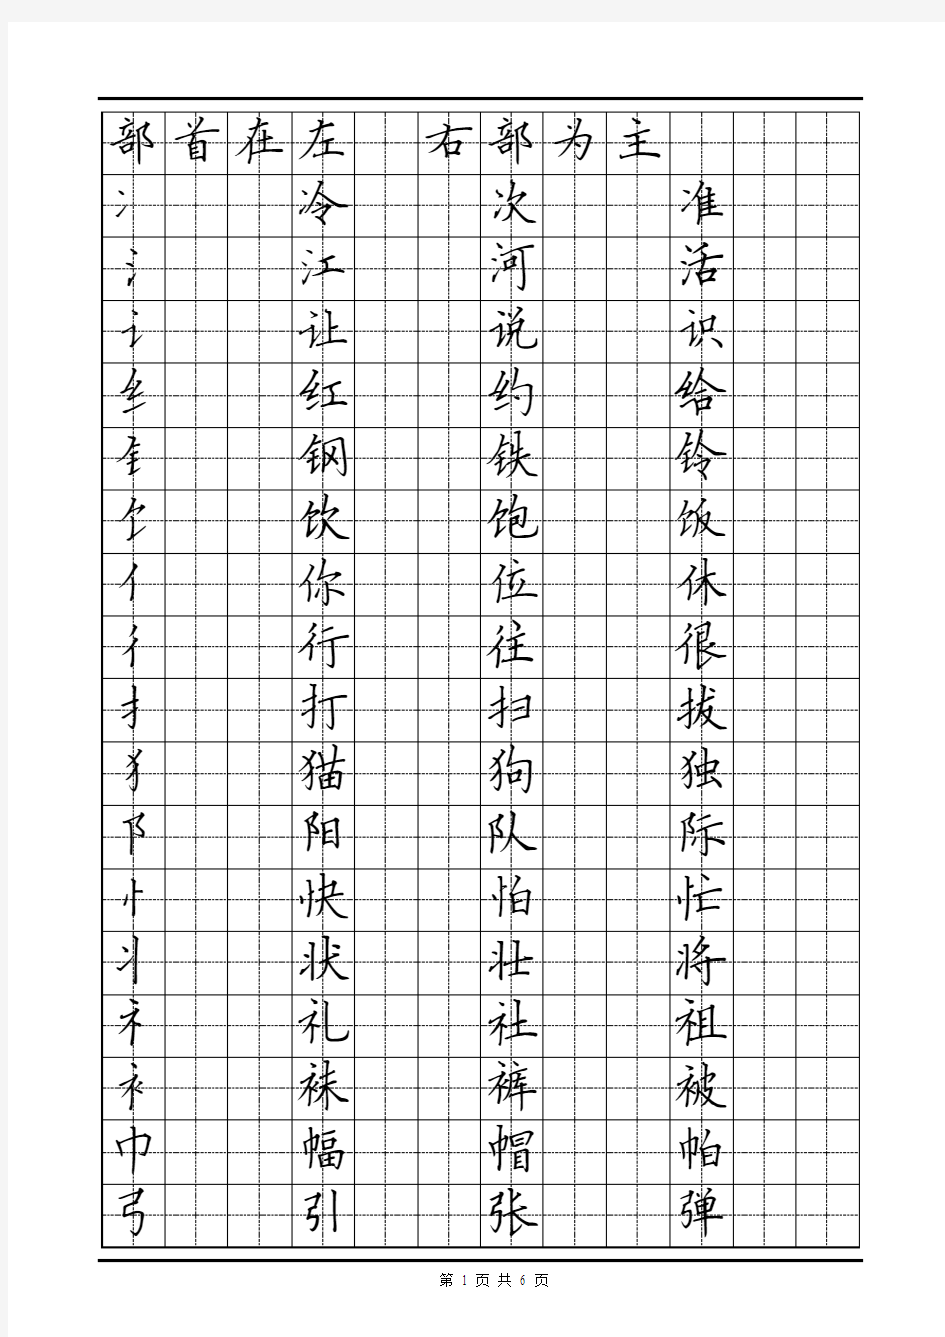 部首在左 右部为主
冫 冷 次 准
氵 江 河 活
讠 让 说 识
纟 红 约 给
钅 钢 铁 铃
饣 饮 饱 饭
亻 你 位 休
彳 行 往 很
扌 打 扫 拔
犭 猫 狗 独
阝 阳 队 际
忄 快 怕 忙
丬 状 壮 将
礻 礼 社 祖
衤 袜 裤 被
巾 幅 帽 帕
弓 引 张 弹
第 1 页 共 6 页